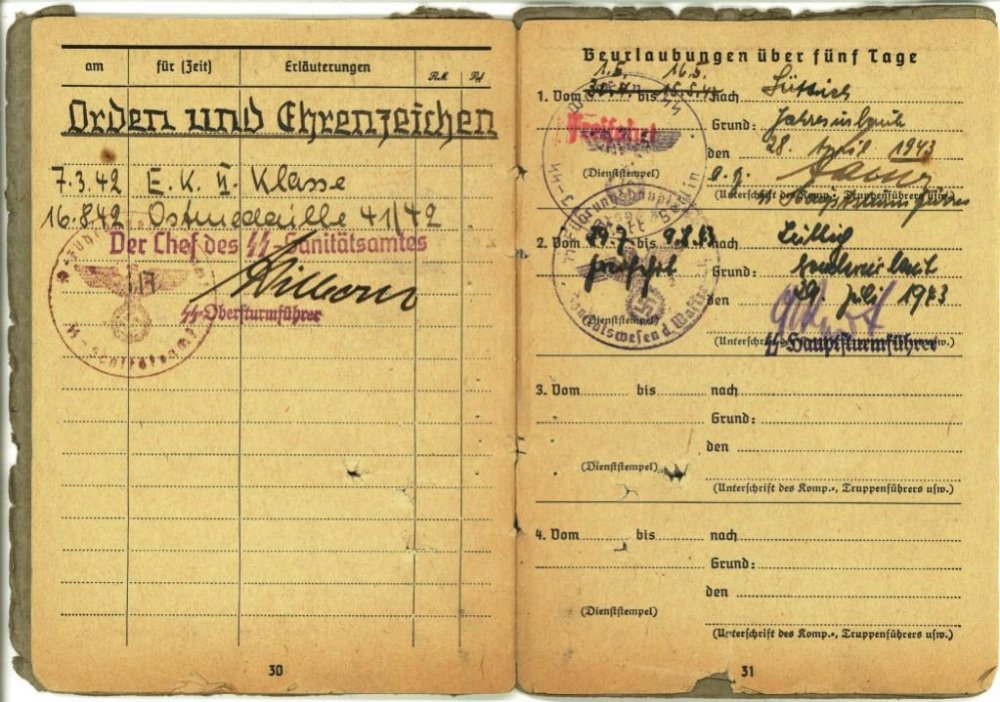 am für (Zeit) Erläuterungen
Orden und Ehrenzeichen
7.3.42 E.K. II. Klasse
16.8.42 Ostmedaille 41/42
Der Chef des SS-Sanitätsamtes
SS-Obersturmführer
30
Beurlaubungen über fünf Tage
1.5. 16.5.
1. Vom bis nach Lüttich
Freifahrt
Grund: Jahresurlaub
den 28. April 1943
(Dienststempel)
(Unterschrift des Komp., Truppenführers usw.)
2. Vom bis nach Lüttich
Freifahrt
Grund: Sonderurlaub
den 29. Juli 1943
(Dienststempel)
(Unterschrift des Komp., Truppenführers usw.)
SS-Hauptsturmführer
3. Vom bis nach
Grund:
den
(Dienststempel)
(Unterschrift des Komp., Truppenführers usw.)
4. Vom bis nach
Grund:
den
(Dienststempel)
(Unterschrift des Komp., Truppenführers usw.)
31